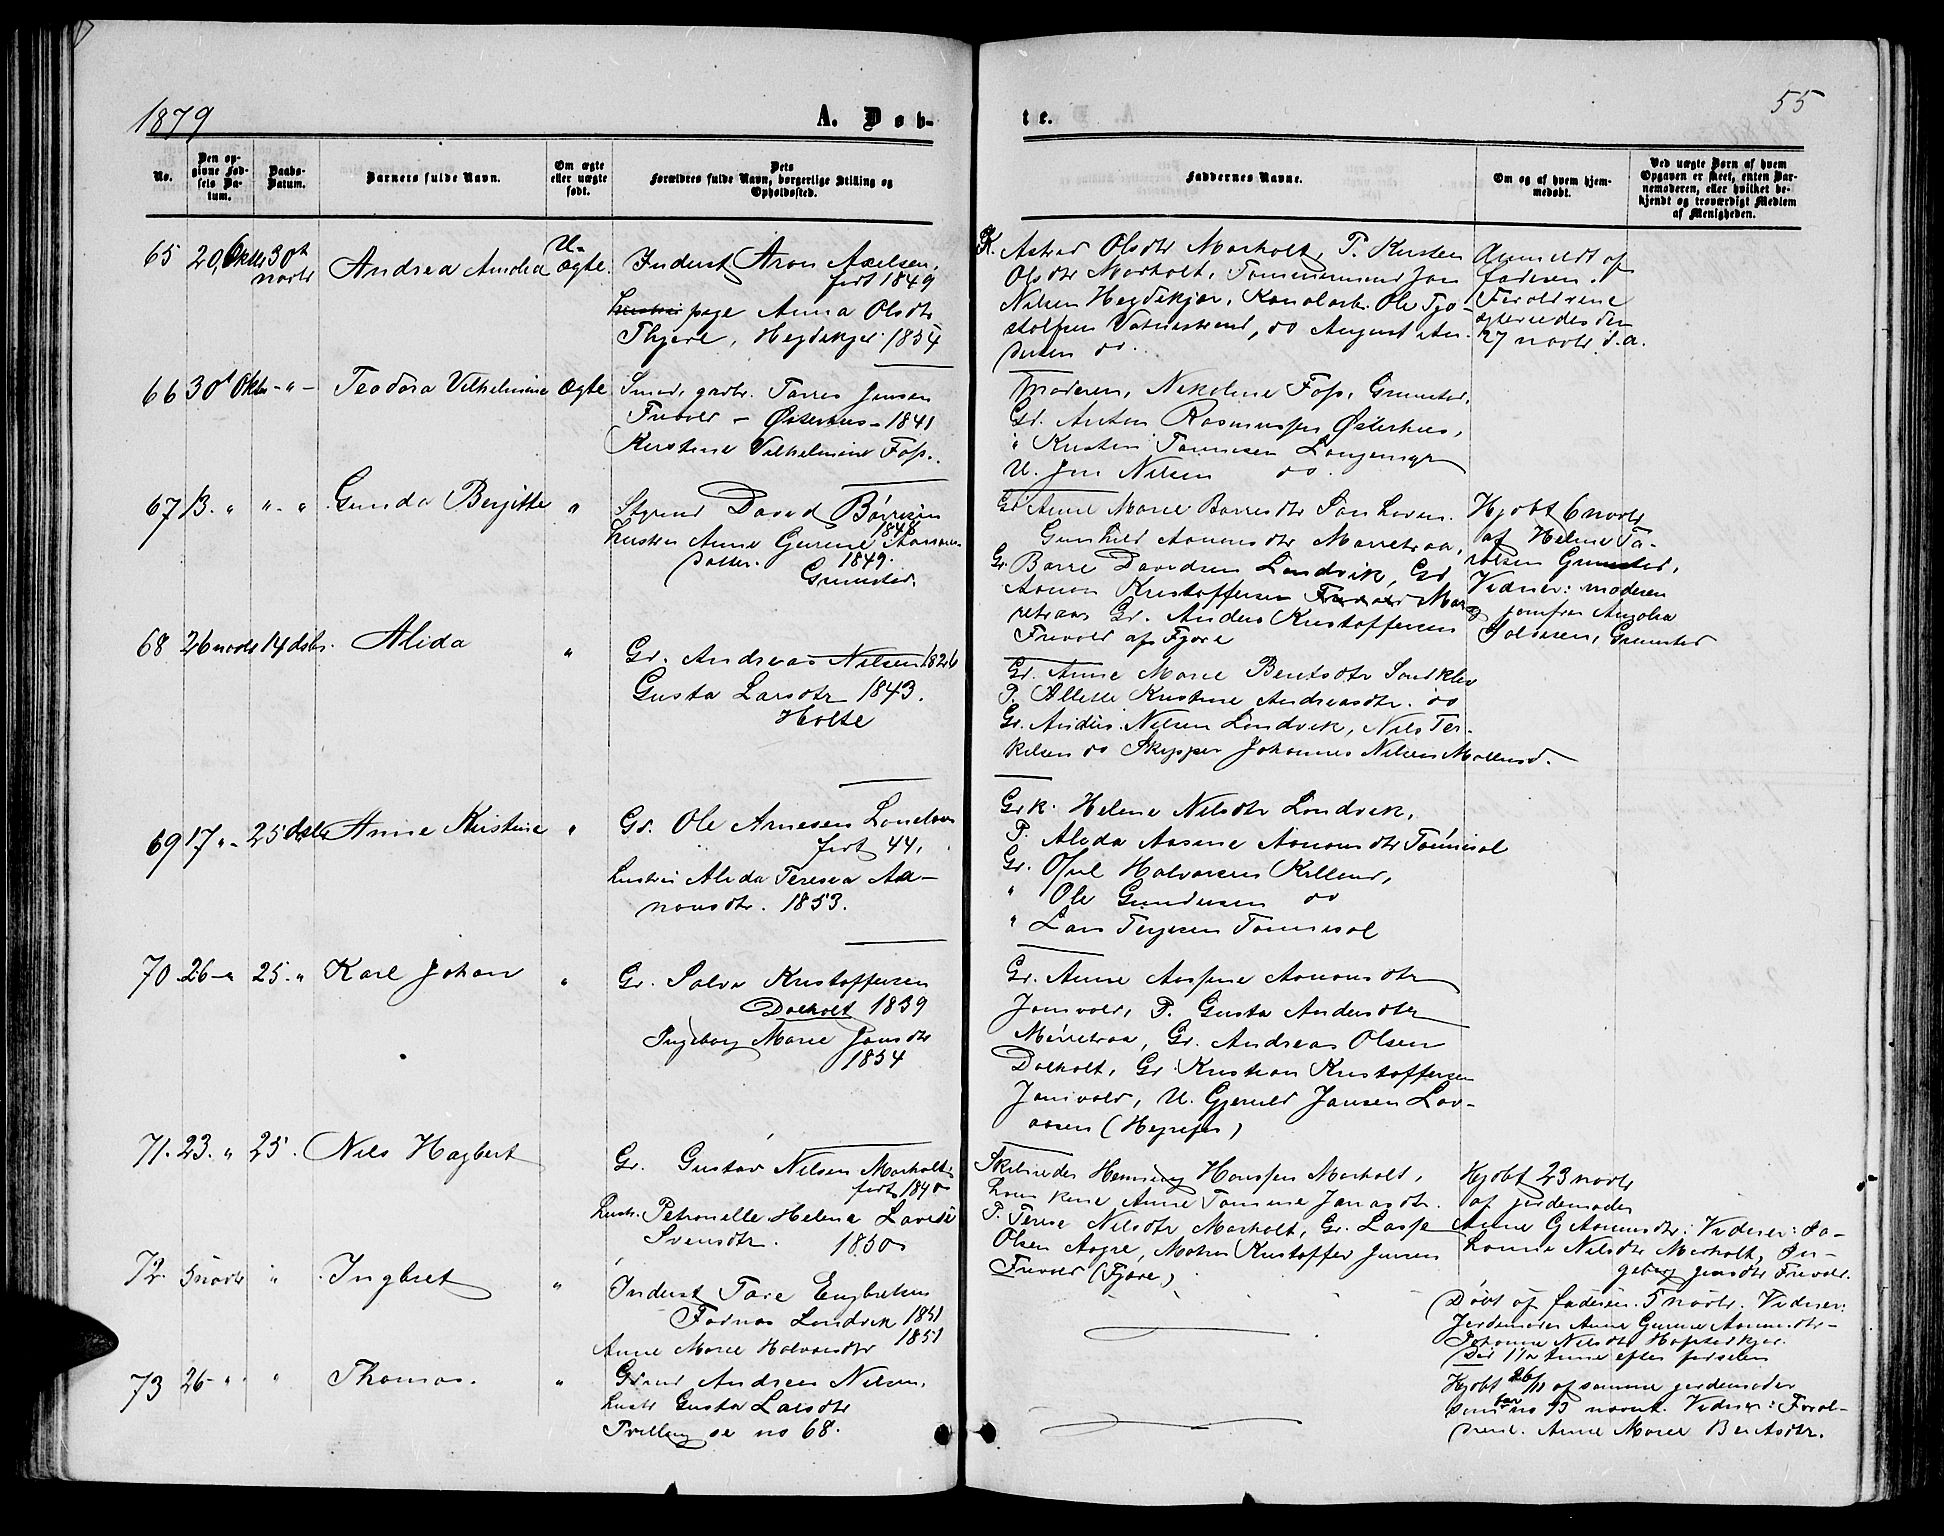 1879
A. Døb-
te.
55
No.
Den op-
givne Fød-
sels Da-
tum.
Daabs-
Datum.
Barnets fulde Navn.
Om ægte
eller uægte
født.
Dets
Forældres fulde Navn, borgerlige Stilling og
Opholdssted.
Faddernes Navne.
Om og af hvem hjem-
medøbt.
Ved uægte Børn af hvem
Opgaven er skeet, enten Bar-
nemoderen, eller hvilket be-
kjendt og troværdigt Medlem
af Menigheden.
65 20 Oktbr 30te
novbr
Andrea Amalia
U-
ægte.
Inderst Aron Axelsen,
født 1849
hustru pige Anna Olsdtr
Hegdekjær 1854
K. Astrid Olsdtr Morholt, P. Kirsten
Olsdtr Morholt, Tømmermand Jon
Nilsen Hegdekjær, Ole Tjo-
stolfsen do August An-
dersen do.
Anmeldt af
faderen.
Forældrene
ægteviedes den
27 novbr. s. a.
66 30te Oktbr - " -
Teodora Vilhelmine
Ægte
Smed, gadbr. Tarres Jensen
Frivold - Østerhus - 1841
Kirstine Vilhelmine Foss.
Moderen, Nikoline Foss, Grimstad,
Gr. Anton Rasmussen Østerhus,
" Kristen Tønnesen
U. Jon Nilsen do.
67 13. " " "
Gunda Bergitte
"
Styrmd David Børresen
1848
hustru Anne Gurine Aanons-
datter. 1849.
Grimstad.
Gr. Anne Marie Børresdtr
Gunhild Aanonsdtr Morretraa,
Gr. Børre Davidsen Landvik, Gr.
Aanon Kristoffersen Frivold Mør-
retraa Gr. Anders Kristoffersen
Frivold af Fjære
Hjdbt 6 novbr
af Helene Ta-
raldsen Grimstad.
Vidner: moderen
og jomfru Amalia
Salvesen, Grimstad
68 26 novbr 14 dsbr.
Alida
"
Gr. Andreas Nilsen 1826
Gusta Larsdtr 1843.
Holte
Gr. Anne Marie Bentsdtr
P. Alette Kristine Andreasdtr. do
Gr. Anders Nilsen Landvik, Nils Ter-
kelsen do Skipper Johannes Nilsen
69 17 " - 25 dsbr
Anne Kristine
"
Gr. Ole Arnesen
født 44,
hustru Alida Teresia Aa-
nonsdtr. 1853.
Grk. Helene Nilsdtr Landvik,
P. Alida Aasine Aanonsdtr Tønnesøl
Gr. Osul Halvorsen Killand,
" Ole Gundersen do
" Lars Terjesen Tønnesøl
70 26 - " 25. "
Karl Johan
"
Gr. Salve Kristoffersen
Dalholt 1839
Ingeborg Marie Jonsdtr
1854
Gr. Anne Aaspine Aanonsdtr
Jomvold, P. Gusta Andersdtr
Mørretraa, Gr. Andreas Olsen
Dalholt, Gr. Kristian Kristoffersen
Jomvold, U. Gjeruld Jansen Lov-
aasen
71. 23. " 25.
Nils Hagbert
Gr. Gustav Nilsen Morholt
født 1840
hustr. Petronelle Helena
Svensdtr. 1850
Henning Hanssen Morholt,
hans kone Anne Tomine Jonasdtr.
P. Terese Nilsdtr Morholt, Gr. Lasse
Olsen Aagre, Matr. Kristoffer Jensen
Frivold (Fjære)
Hjdbt 23 novbr
af jordemoder
Anne G Aanonsdtr: Vidner: Jo-
hanne Nilsdtr Morholt, In-
geborg Jensdtr Frivold.
72. 5 novbr "
Ingbret
"
Inderst Tore Engbretsen
Landvik 1851
Anne Marie Halvorsdtr 1851
Døbt af faderen. 5 novbr. Vidner:
Jordemoder Anne Gurine Aanonsdtr
Johanne Nilsdtr
Død 11 timer efter fødselen
73 26 - " "
Thomas.
"
Grmd Andreas Nilsen,
hustr Gusta Larsdtr
Tvilling se no 68.
Hjdbt 26/11 af samme jordemoder
som no 73 nævnt. Vidner: Foræl-
drene. Anne Marie Bentsdtr.